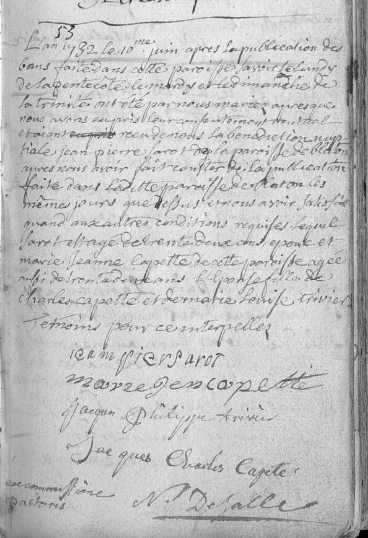 53
L'an 1782 le 10me juin apres la publication des
bans faite dans cette paroisse savoir le lundy
de la pentecôte le mardy et le dimanche de
la trinité ont été par nous mariez apres que
nous avons eu pris leur consentement mutual
et recu de nous la bénédiction nup
tiale jean pierre sarot de la paroisse de
apres nous avoir fait conster de la publication
faite dans la ditte paroisse de les
mêmes jours que dessus et nous avoir satisfait
quand aux autres conditions requises lequel
sarot est age de trente deux ans epoux et
marie jeanne Capette de cette paroisse agée
aussi de trente deux ans l'Epouse fille de
Charles Capette et de marie louise trivier
Temoins pour ce interpellez
iean pier sarot
marie gen capette
jacque philippe trivier
Jacques Charles Capte
ex commissione
pastoris
N. Desalle